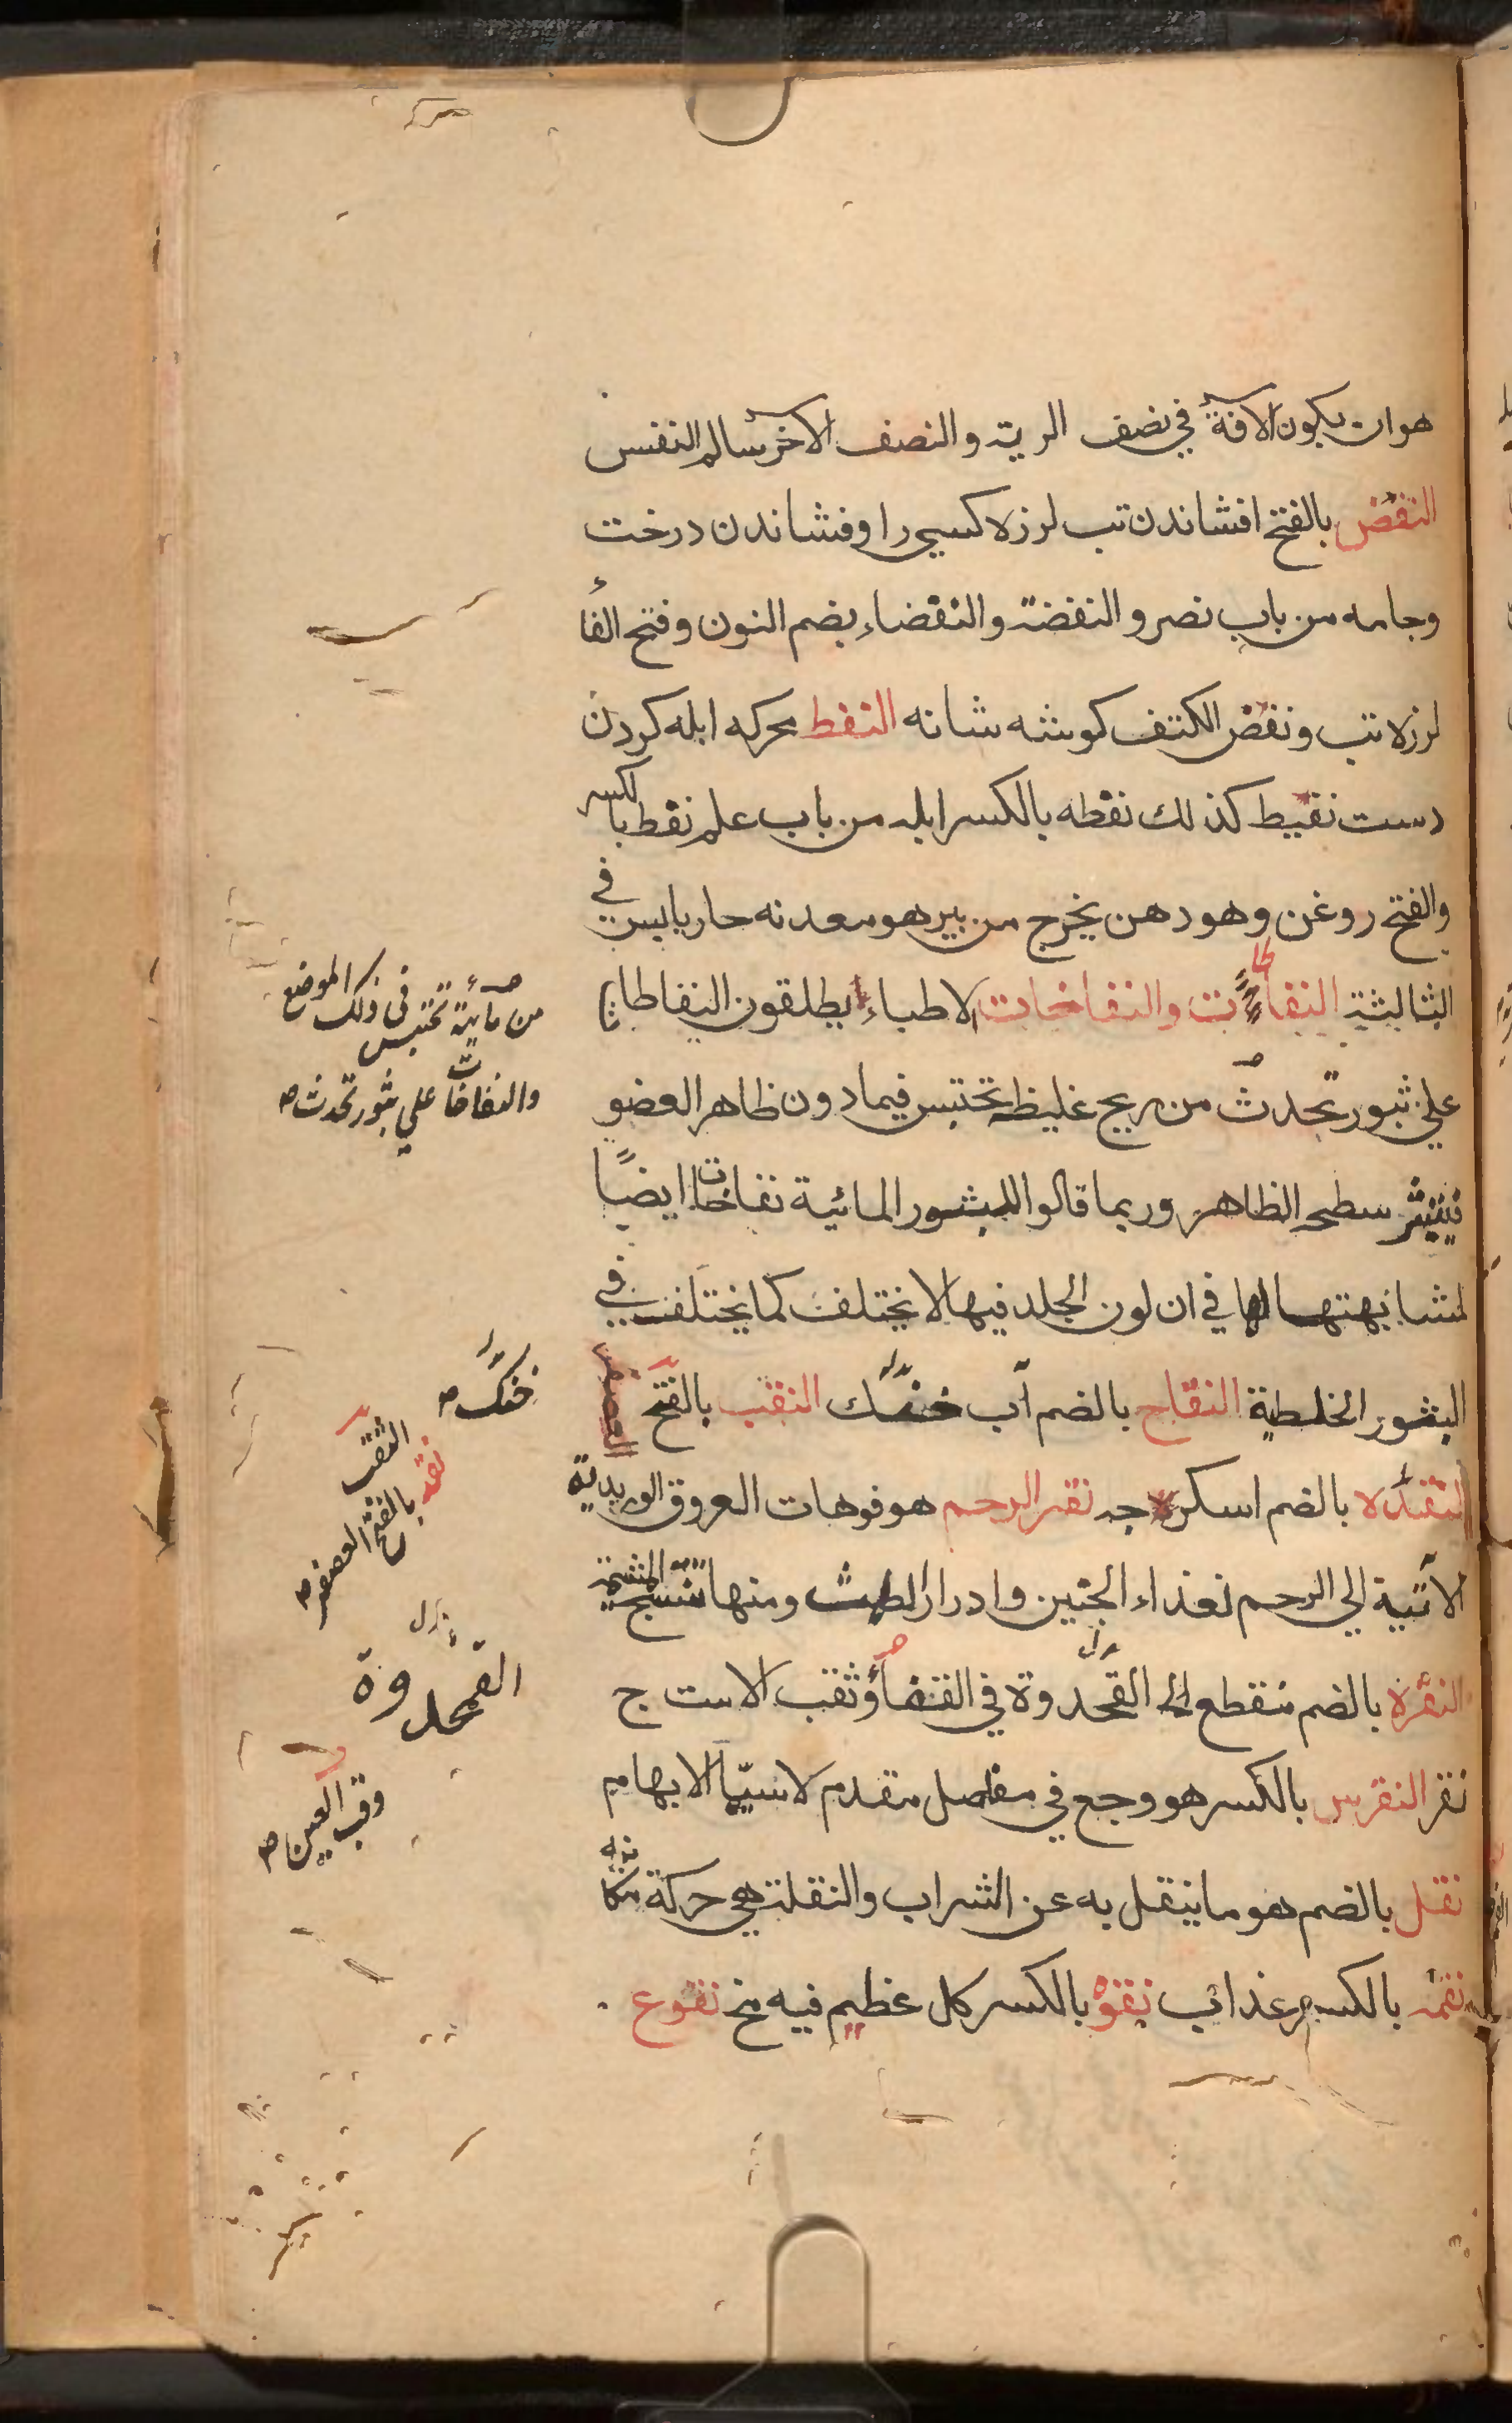 هو ان يكون الآفة في نصف الرية والنصف الآخر سالم النفس
النفض بالفتح افشاندن تب لرزه كسي را وفشاندن درخت
وجامه من باب نصر والنفضة والنفضاء بضم النون وفتح الفا
لرزه تب ونغض الكتف كوشه شانه النفط محركه ابله كردن
دست نفيط كذلك نفطه بالكسر ابله من باب علم نفط بالكسر
والفتح روغن وهو دهن يخرج من بير هو معدنه حار يابس في
الثالثة النفاطات والنفاخات الاطباء يطلقون النفاطات
علي ثبور تحدث من ريح غليظة تحتبس فيما دون ظاهر العضو
سطح الظاهر وربما قالوا للبثور المائية نفاخات ايضًا
لمشابهتها لها في ان لون الجلد فيها لا يختلف كما يختلف في
البثور الخلطية النقاح بالضم آب خنك النقب بالفتح
النقده بالضم اسكرجه نقر الرحم هو فوهات العروق الوريدية
الآتية الي الرحم لغذاء الجنين وادرار الطمث ومنها تنتسج المشيمة
النقرة بالضم منقطع القمحدوة في القفا وثقب الاست ج
نقر النقرس بالكسر هو وجع في مفاصل مقدم لاسيّما الابهام
نقل بالضم هو ما ينقل به عن الشراب والنقلة هي حركة
نقمه بالكسر عذاب نقوه بالكسر كل عظيم فيه مخ نقوع
من مائية تحتبس في ذلك الموضع
والنفاخات علي بثور تحدث
خنك
الثقب
نقد بالفتح العصفر
القمحدوة
وقب العين